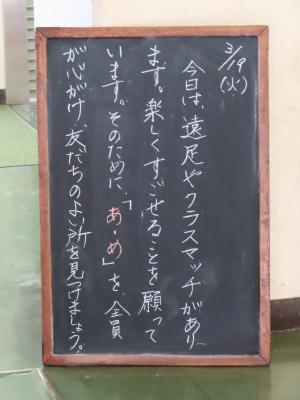 3/19(火)
今日は、遠足やクラスマッチがあり
ます。楽しくすごせることを願って
います。そのために、「あ・め」を、全員
が心がけ、友だちのよい所を見つけましょう。